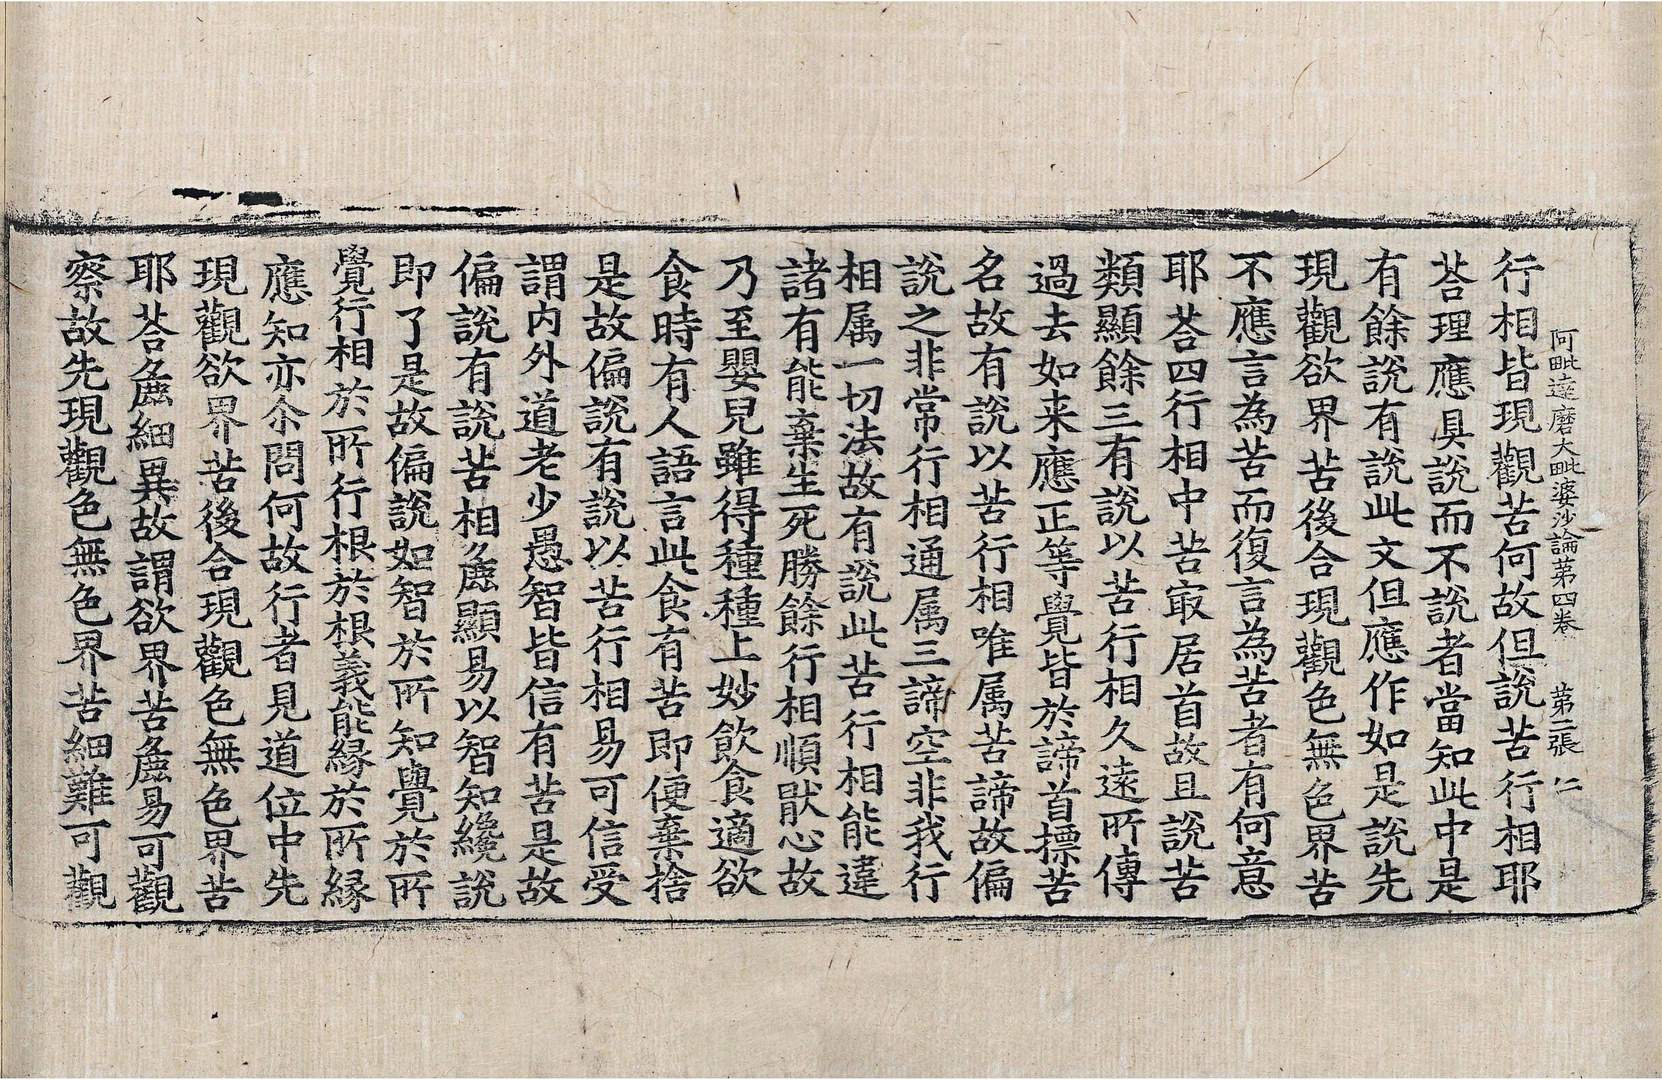 阿毗達磨大毗婆沙論第四卷 第二張 仁
行相皆現觀苦何故但說苦行相耶
荅理應具說而不說者當知此中是
有餘說有說此文但應作如是說先
現觀欲界苦後合現觀色無色界苦
不應言為苦而復言為苦者有何意
耶荅四行相中苦㝡居首故且說苦
類顯餘三有說以苦行相久遠所傳
過去如来應正等覺皆於諦首摽苦
名故有說以苦行相唯属苦諦故偏
說之非常行相通属三諦空非我行
相属一切法故有說此苦行相能違
諸有能棄生死勝餘行相順猒心故
乃至嬰兒雖得種種上妙飲食適欲
食時有人語言此食有苦即便棄捨
是故偏說有說以苦行相易可信受
謂内外道老少愚智皆信有苦是故
偏說有說苦相麁顯易以智知纔說
即了是故偏說如智於所知覺於所
覺行相於所行根於根義能緣於所緣
應知亦尒問何故行者見道位中先
現觀欲界苦後合現觀色無色界苦
耶荅麁細異故謂欲界苦麁易可觀
察故先現觀色無色界苦細難可觀